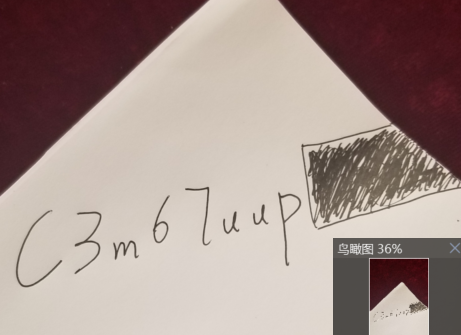 C3m67uup
鸟瞰图 36%